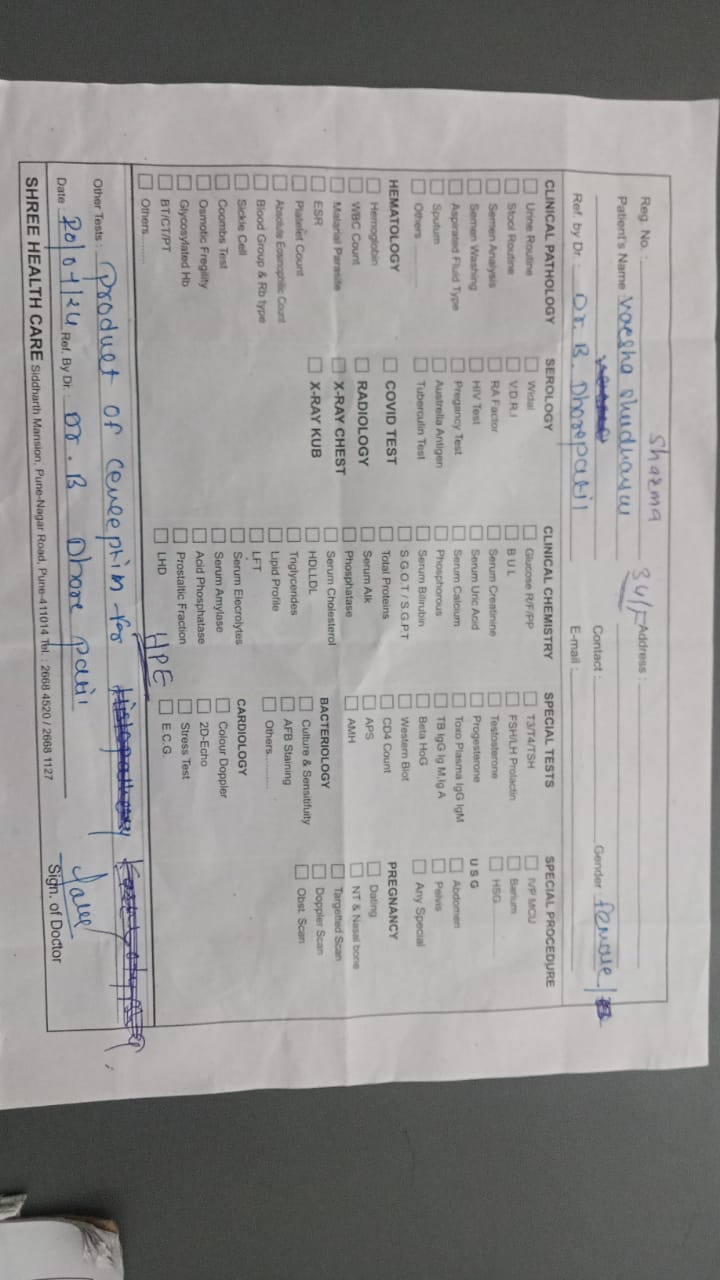 Reg. No. :
Sharma
Patient's Name
34/F
Address :
Contact :
Gender : female/
Ref. by Dr. : Dr. B. Dhorepatil
E-mail :
CLINICAL PATHOLOGY
Urine Routine
Stool Routine
Semen Analysis
Semen Washing
Aspirated Fluid Type
Sputum
Others
HEMATOLOGY
Hemoglobin
WBC Count
Malarial Parasite
ESR
Platelet Count
Absolute Eosnophilic Count
Blood Group & Rb type
Sickle Cell
Coombs Test
Osmotic Fregility
Glycosylated Hb
BT/CT/PT
Others..........
SEROLOGY
Widal
V.D.R.I
RA Factor
HIV Test
Pregancy Test
Austrella Antigen
Tuberculin Test
COVID TEST
RADIOLOGY
X-RAY CHEST
X-RAY KUB
CLINICAL CHEMISTRY
Glucose R/F/PP
B U L
Serum Creatinine
Serum Uric Acid
Serum Calcium
Phosphorous
Serum Bilirubin
S.G.O.T / S.G.P.T
Total Proteins
Serum Alk
Phosphatase
Serum Cholesterol
HDLLDL
Triglycerides
Lipid Profile
LFT
Serum Elecrolytes
Serum Amylase
Acid Phosphatase
Prostaltic Fraction
LHD
SPECIAL TESTS
T3/T4/TSH
FSH/LH Prolactin
Testosterone
Progesterone
Toxo Plasma IgG IgM
TB IgG Ig M,Ig A
Beta HoG
Western Blot
CD4 Count
APS
AMH
BACTERIOLOGY
Culture & Sensitifuity
AFB Staining
Others..........
CARDIOLOGY
Colour Doppler
2D-Echo
Stress Test
E.C.G.
SPECIAL PROCEDURE
IVP MCU
Barium
HSG
U S G
Abdomen
Pelvis
Any Special
PREGNANCY
Dating
NT & Nasal bone
Targetted Scan
Doppler Scan
Obst. Scan
HPE
Other Tests : Product of conception for
Date : 20/07/24 Ref. By Dr. Dr. B Dhore patil
Sign. of Doctor
SHREE HEALTH CARE Siddharth Mansion, Pune-Nagar Road, Pune-411014 Tel. : 2668 4520 / 2668 1127